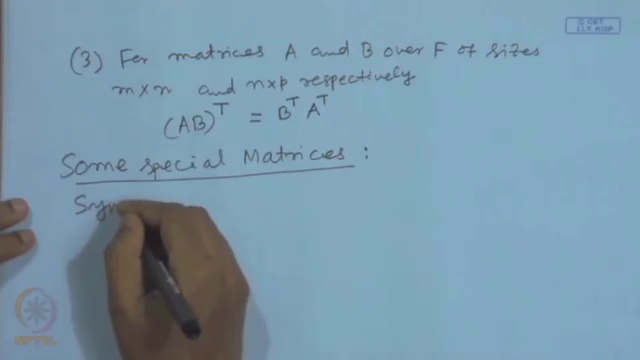 © CET
I.I.T. KGP
(3) For matrices A and B over F of sizes
m×n and n×p respectively
(AB)^T = B^T A^T
Some special Matrices :
Sym
NPTEL